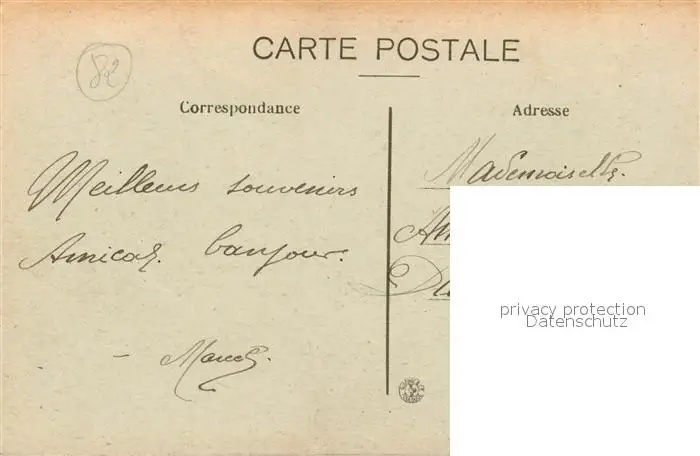 82
CARTE POSTALE
Correspondance
Adresse
Meilleurs souvenirs
Amical bonjour.
Marcel.
Mademoiselle
privacy protection
Datenschutz